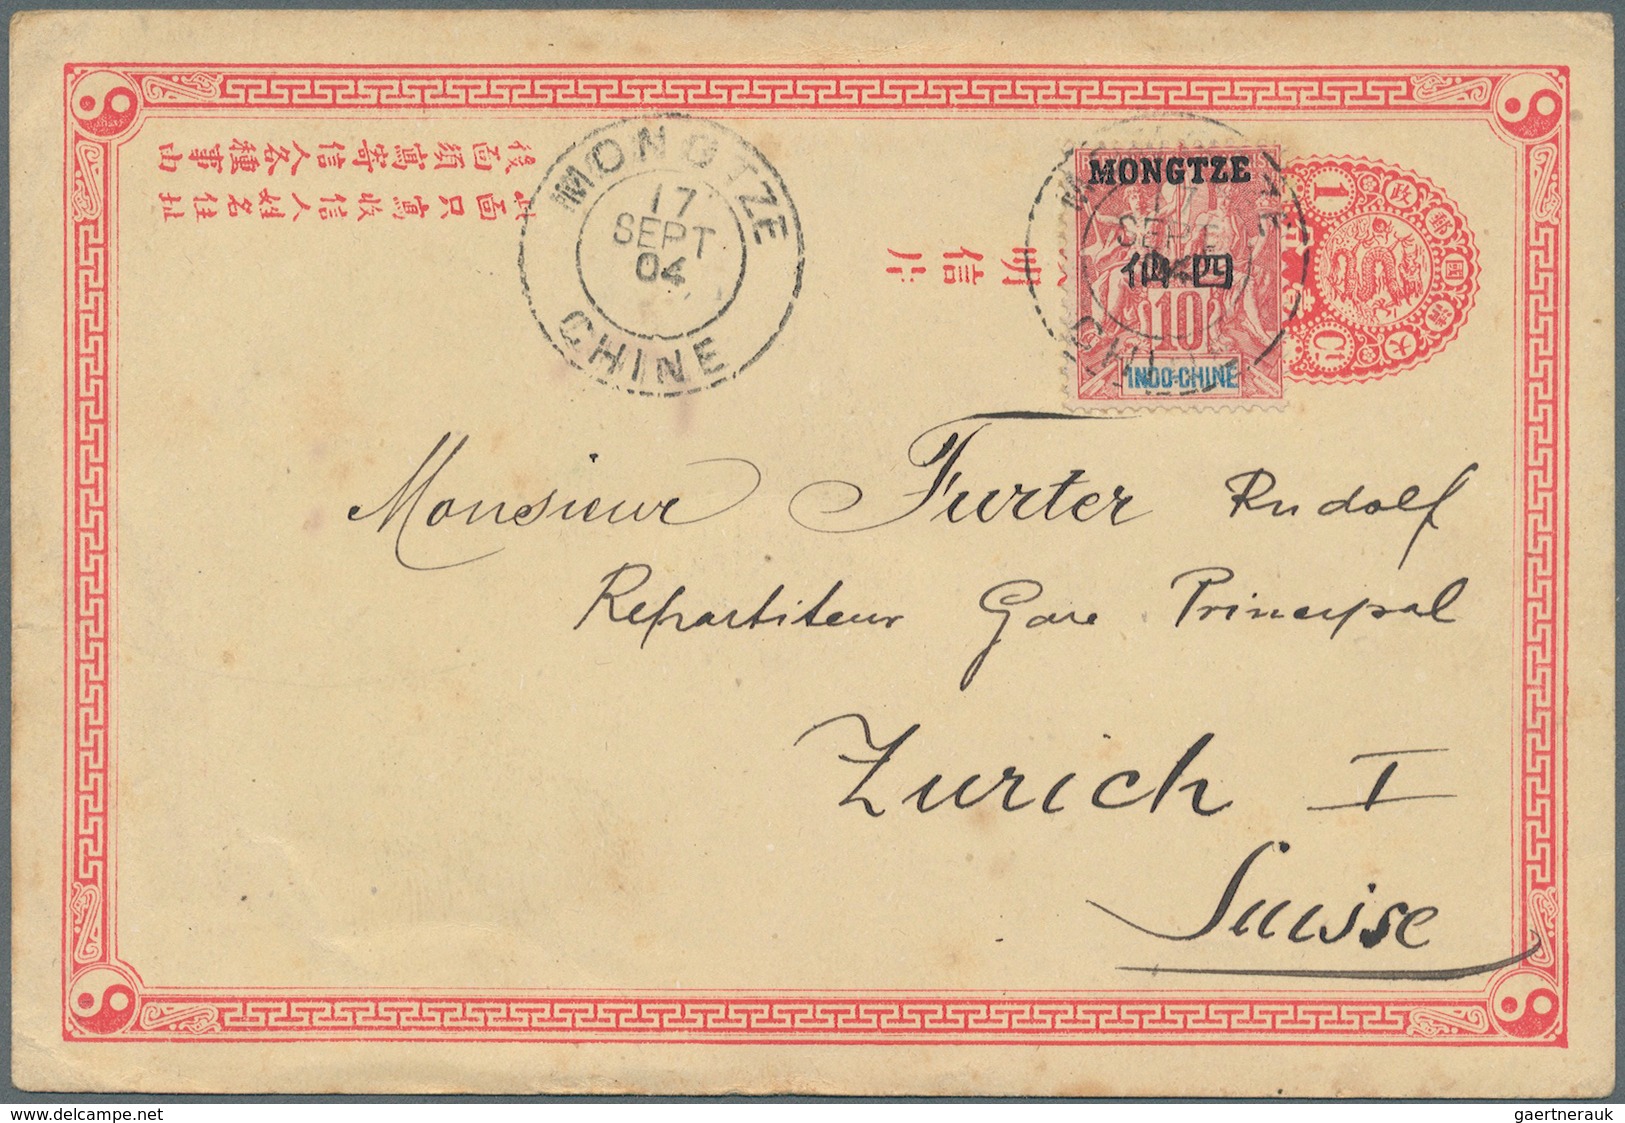 後面須寫寄信人各種事由
此面只寫收信人姓名住址
MONGTZE
17
SEPT
04
CHINE
明信片
MONGTZE
仙四
10
INDO-CHINE
大清國郵政
1
1 Ct
Monsieur Furter Rudolf
Repartiteur Gare Principal
Zurich I
Suisse
www.delcampe.net
gaertnerauk